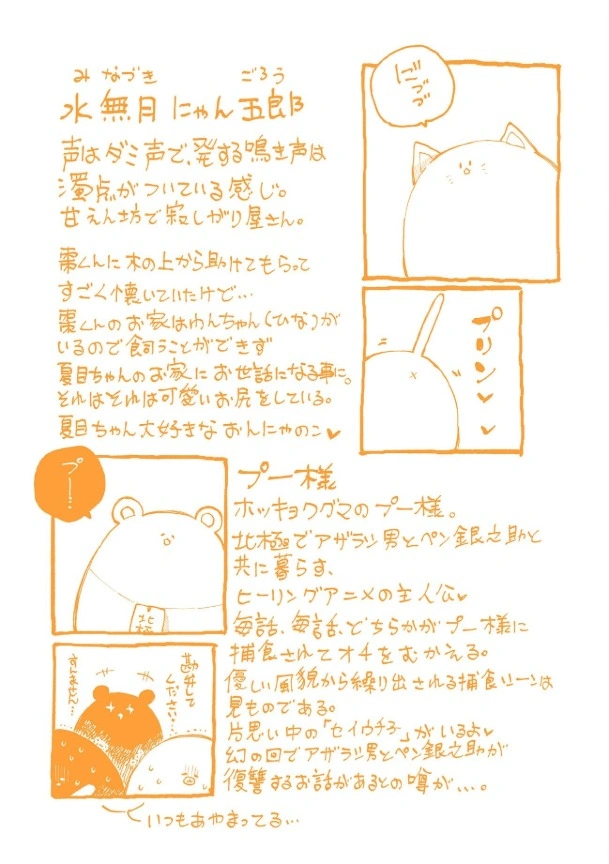 み なづき ごろう
水無月にゃん五郎
声はダミ声で、発する鳴き声は
濁点がついている感じ。
甘えん坊で寂しがり屋さん。
棗くんに木の上から助けてもらって
すごく懐いていたけど…
棗くんのお家はわんちゃん(ひな)が
いるので飼うことができず
夏目ちゃんのお家にお世話になる事に。
それはそれは可愛いお尻をしている。
夏目ちゃん大好きなおんにゃのこ♥
プリン♥♥
プー…
北極
プー様
ホッキョクグマのプー様。
北極でアザラシ男とペン銀之助と
共に暮らす、
ヒーリングアニメの主人公♥
毎話、毎話、どちらかがプー様に
捕食されてオチをむかえる。
優しい風貌から繰り出される捕食シーンは
見ものである。
片思い中の「セイウチ子」がいるよ♥
幻の回でアザラシ男とペン銀之助が
復讐するお話があるとの噂が…。
勘弁して
ください…
すんません…
いつもあやまってる…